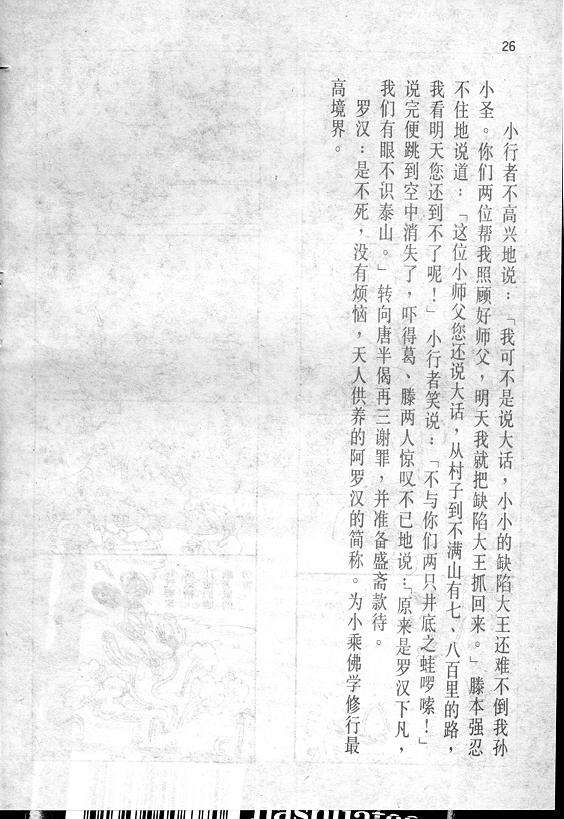 26
小行者不高兴地说：「我可不是说大话，小小的缺陷大王还难不倒我孙
小圣。你们两位帮我照顾好师父，明天我就把缺陷大王抓回来。」滕本强忍
不住地说道：「这位小师父您还说大话，从村子到不满山有七、八百里的路，
我看明天您还到不了呢！」小行者笑说：「不与你们两只井底之蛙啰嗦！」
说完便跳到空中消失了，吓得葛、滕两人惊叹不已地说：「原来是罗汉下凡，
我们有眼不识泰山。」转向唐半偈再三谢罪，并准备盛斋款待。
罗汉：是不死，没有烦恼，天人供养的阿罗汉的简称。为小乘佛学修行最
高境界。